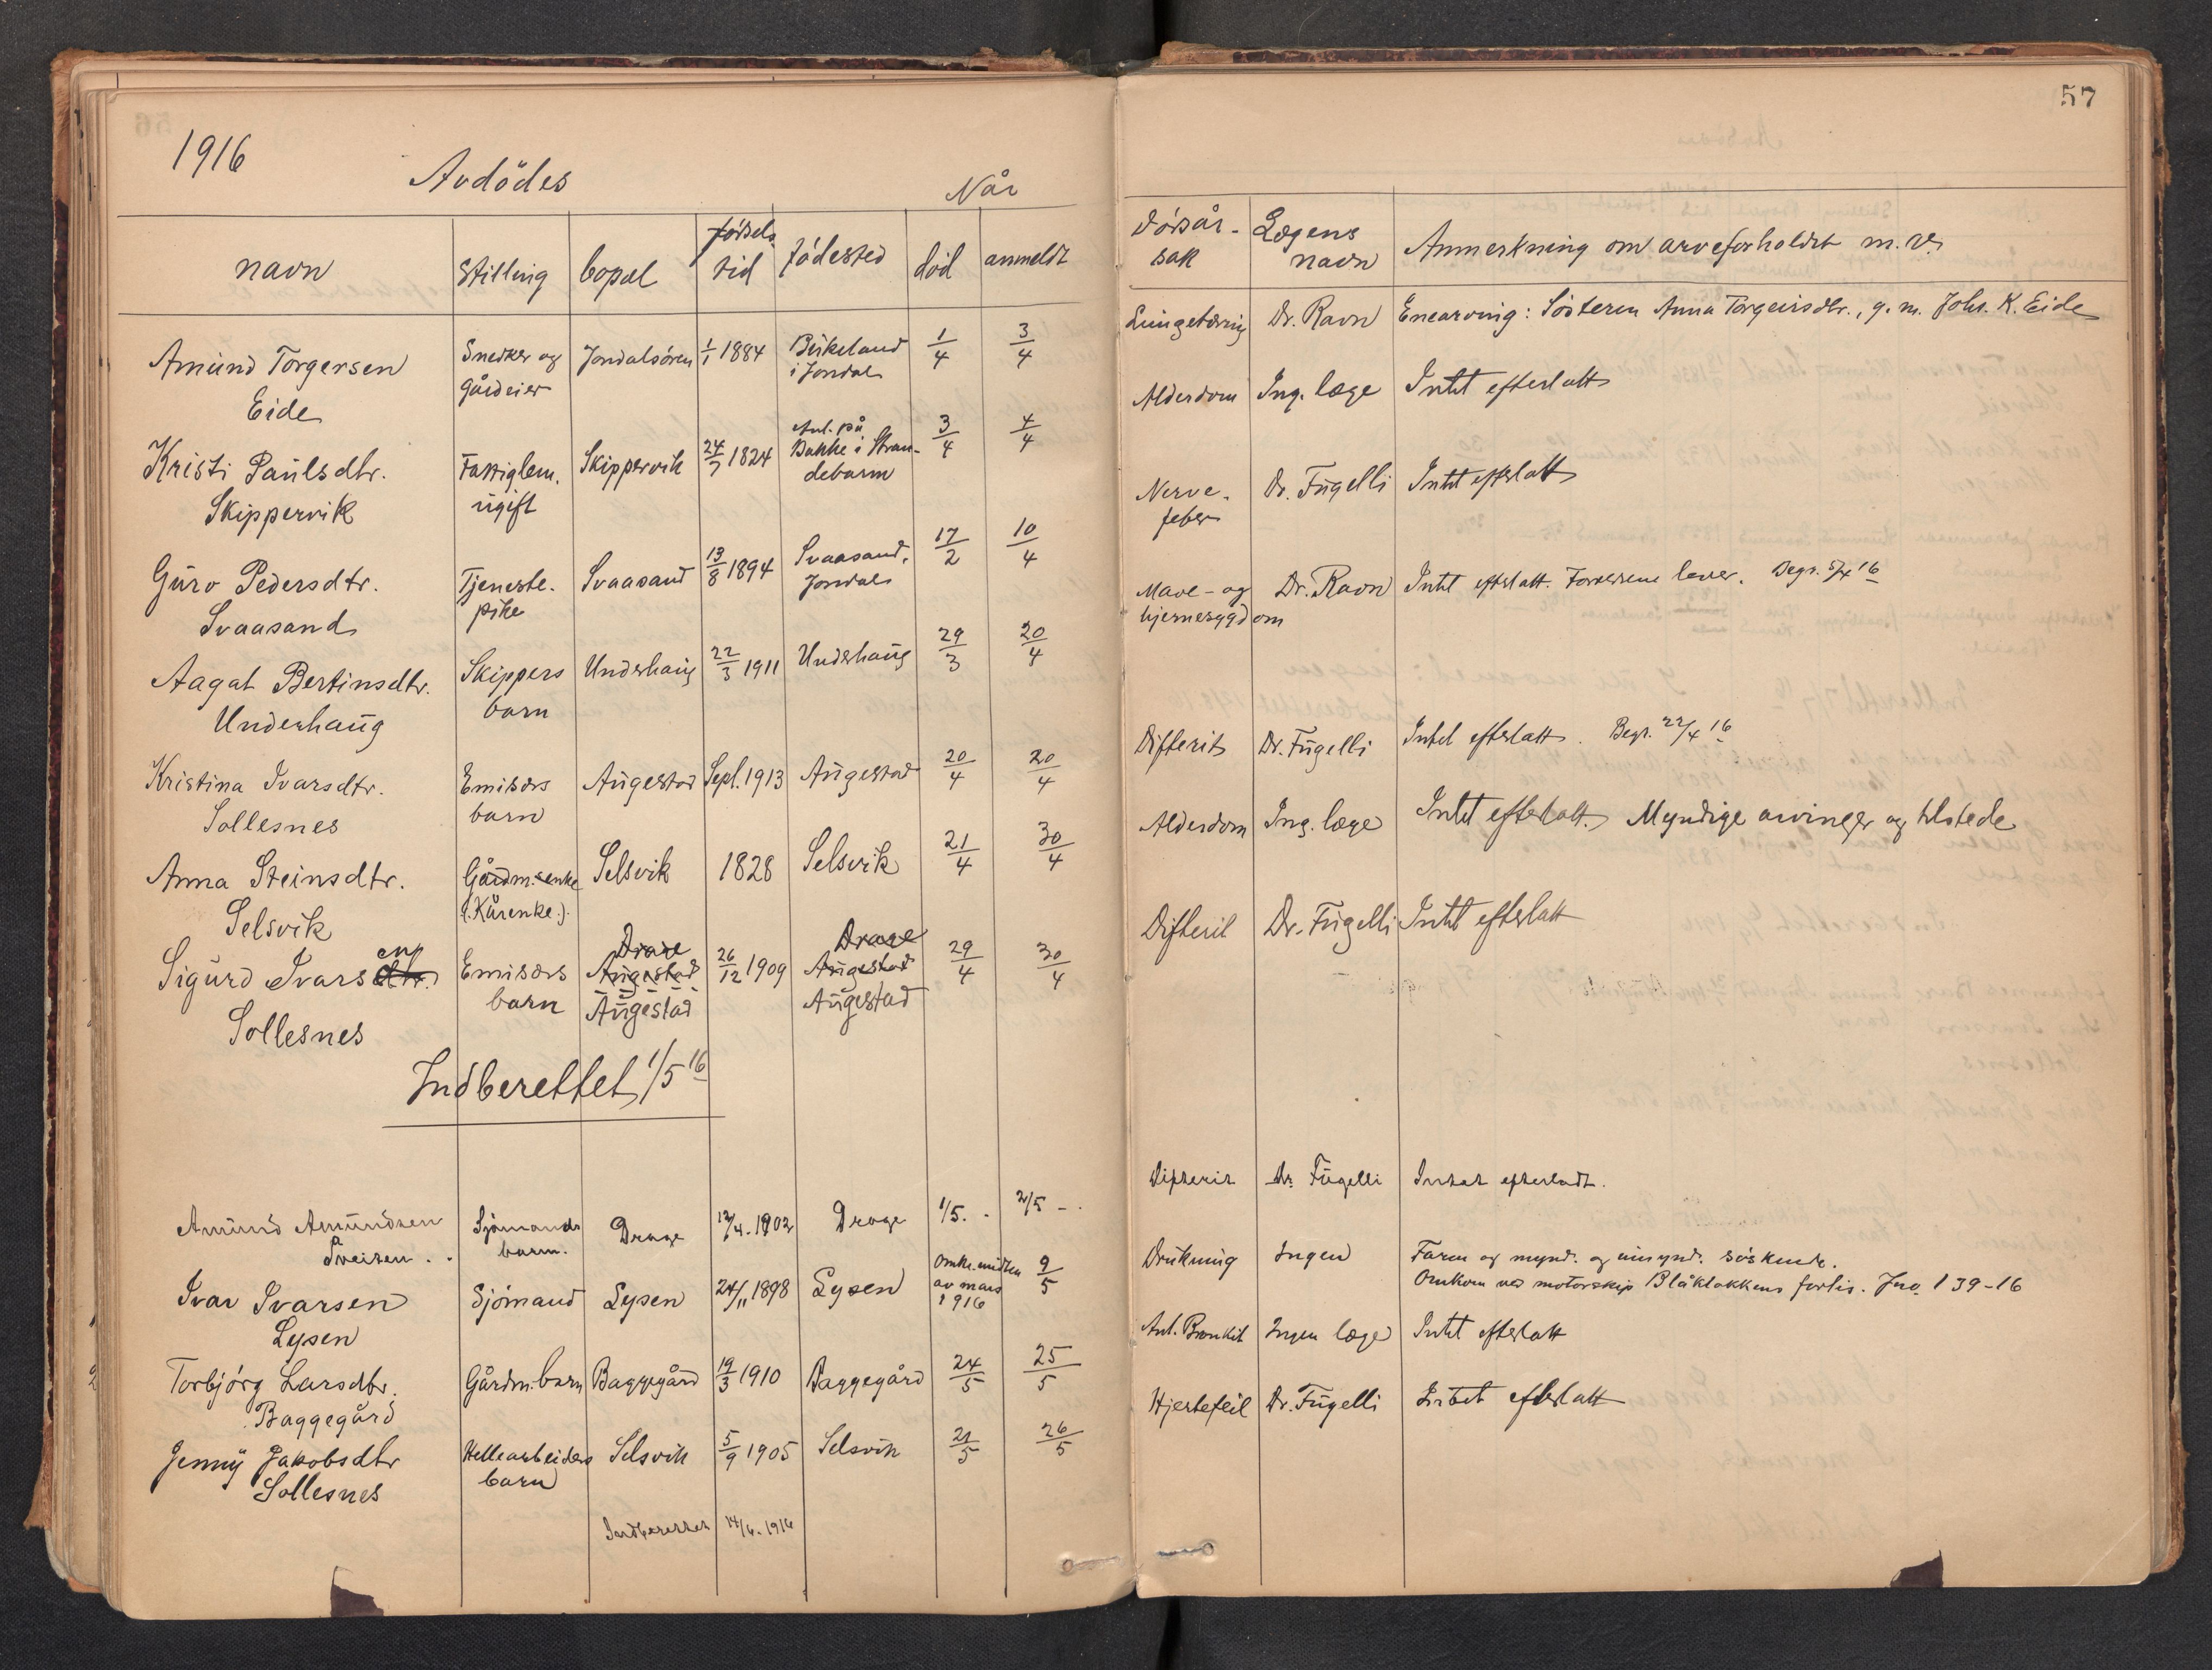 57
1916
Avdödes
Når
navn
Stilling
bopel
födsels
tid
födested
död
anmeldt
dödsår-
sak
Lægens
navn
Anmerkning om arveforholdet m.v.
Amund Torgersen
Eide
Snedker og
gårdeier
Jondalsören
1/1 1884
Birkeland
i Jondal
1/4
3/4
Lungetæring
Dr. Ravn
Enearving: Sösteren Anna Torgeirsdtr., g. m. Johs. K. Eide
Kristi Paulsdtr.
Skippervik
Fattiglem.
ugift
Skippervik
24/7 1824
Anl. på
Bakke i Stran-
debarm
3/4
4/4
Alderdom
Ing. læge
Intet efterlatt
Guro Pedersdtr.
Svaasand
Tjeneste-
pike
Svaasand
13/8 1894
Svaasand,
Jondal
17/2
10/4
Nerve-
feber
Dr. Fugelli
Intet efterlatt
Aagat Bertinsdtr.
Underhaug
Skippers
barn
Underhaug
22/3 1911
Underhaug
29/3
20/4
Mave- og
hjernesygdom
Dr. Ravn
Intet efterlatt. Foreldrene lever. Begr. 5/4 16
Kristina Ivarsdtr.
Sollesnes
Emisærs
barn
Augestad
Sept. 1913
Augestad
20/4
20/4
Difterit
Dr. Fugelli
Intet efterlatt. Begr. 22/4 16
Anna Steinsdtr.
Selsvik
Gårdm.enke
(Kårenke.)
Selsvik
1828
Selsvik
21/4
30/4
Alderdom
Ing. læge
Intet efterlatt. Myndige arvinger og tilstede
Sigurd Ivarsdtr. en
Sollesnes
Emisærs
barn
Drage
Augestad
Augestad
26/12 1909
Drage
Augestad
Augestad
29/4
30/4
Difterit
Dr. Fugelli
Intet efterlatt
Indberettet 1/5 16
Amund Amundsen
Sveisen
Sjömands
barn.
Drage
12/4. 1902
Drage
1/5. -
2/5 -
Difterit
Dr. Fugelli
Intet efterladt.
Ivar Ivarsen
Lysen
Sjömand
Lysen
24/11 1898
Lysen
Omkr. midten
av mars
1916
9/5
Drukning
Ingen
Faren og mynd. og umynd. söskende.
Omkom ved motorskip Blåklokkens forlis. Jno 139-16
Torbjörg Larsdtr.
Baggegård
Gårdm. barn
Baggegård
19/3 1910
Baggegård
24/5
25/5
Ant. Bronkit
Ingen læge
Intet efterlatt
Jenny Jakobsdtr
Sollesnes
Hellearbeiders
barn
Selsvik
5/9 1905
Selsvik
21/5
26/5
Hjertefeil
Dr. Fugelli
Intet efterlatt
Indberettet 14/6. 1916